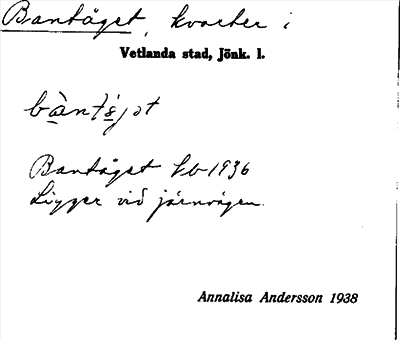 Bantåget, kvarter i
Vetlanda stad, Jönk. l.
Bantåget 1936
Ligger vid järnvägen.
Annalisa Andersson 1938